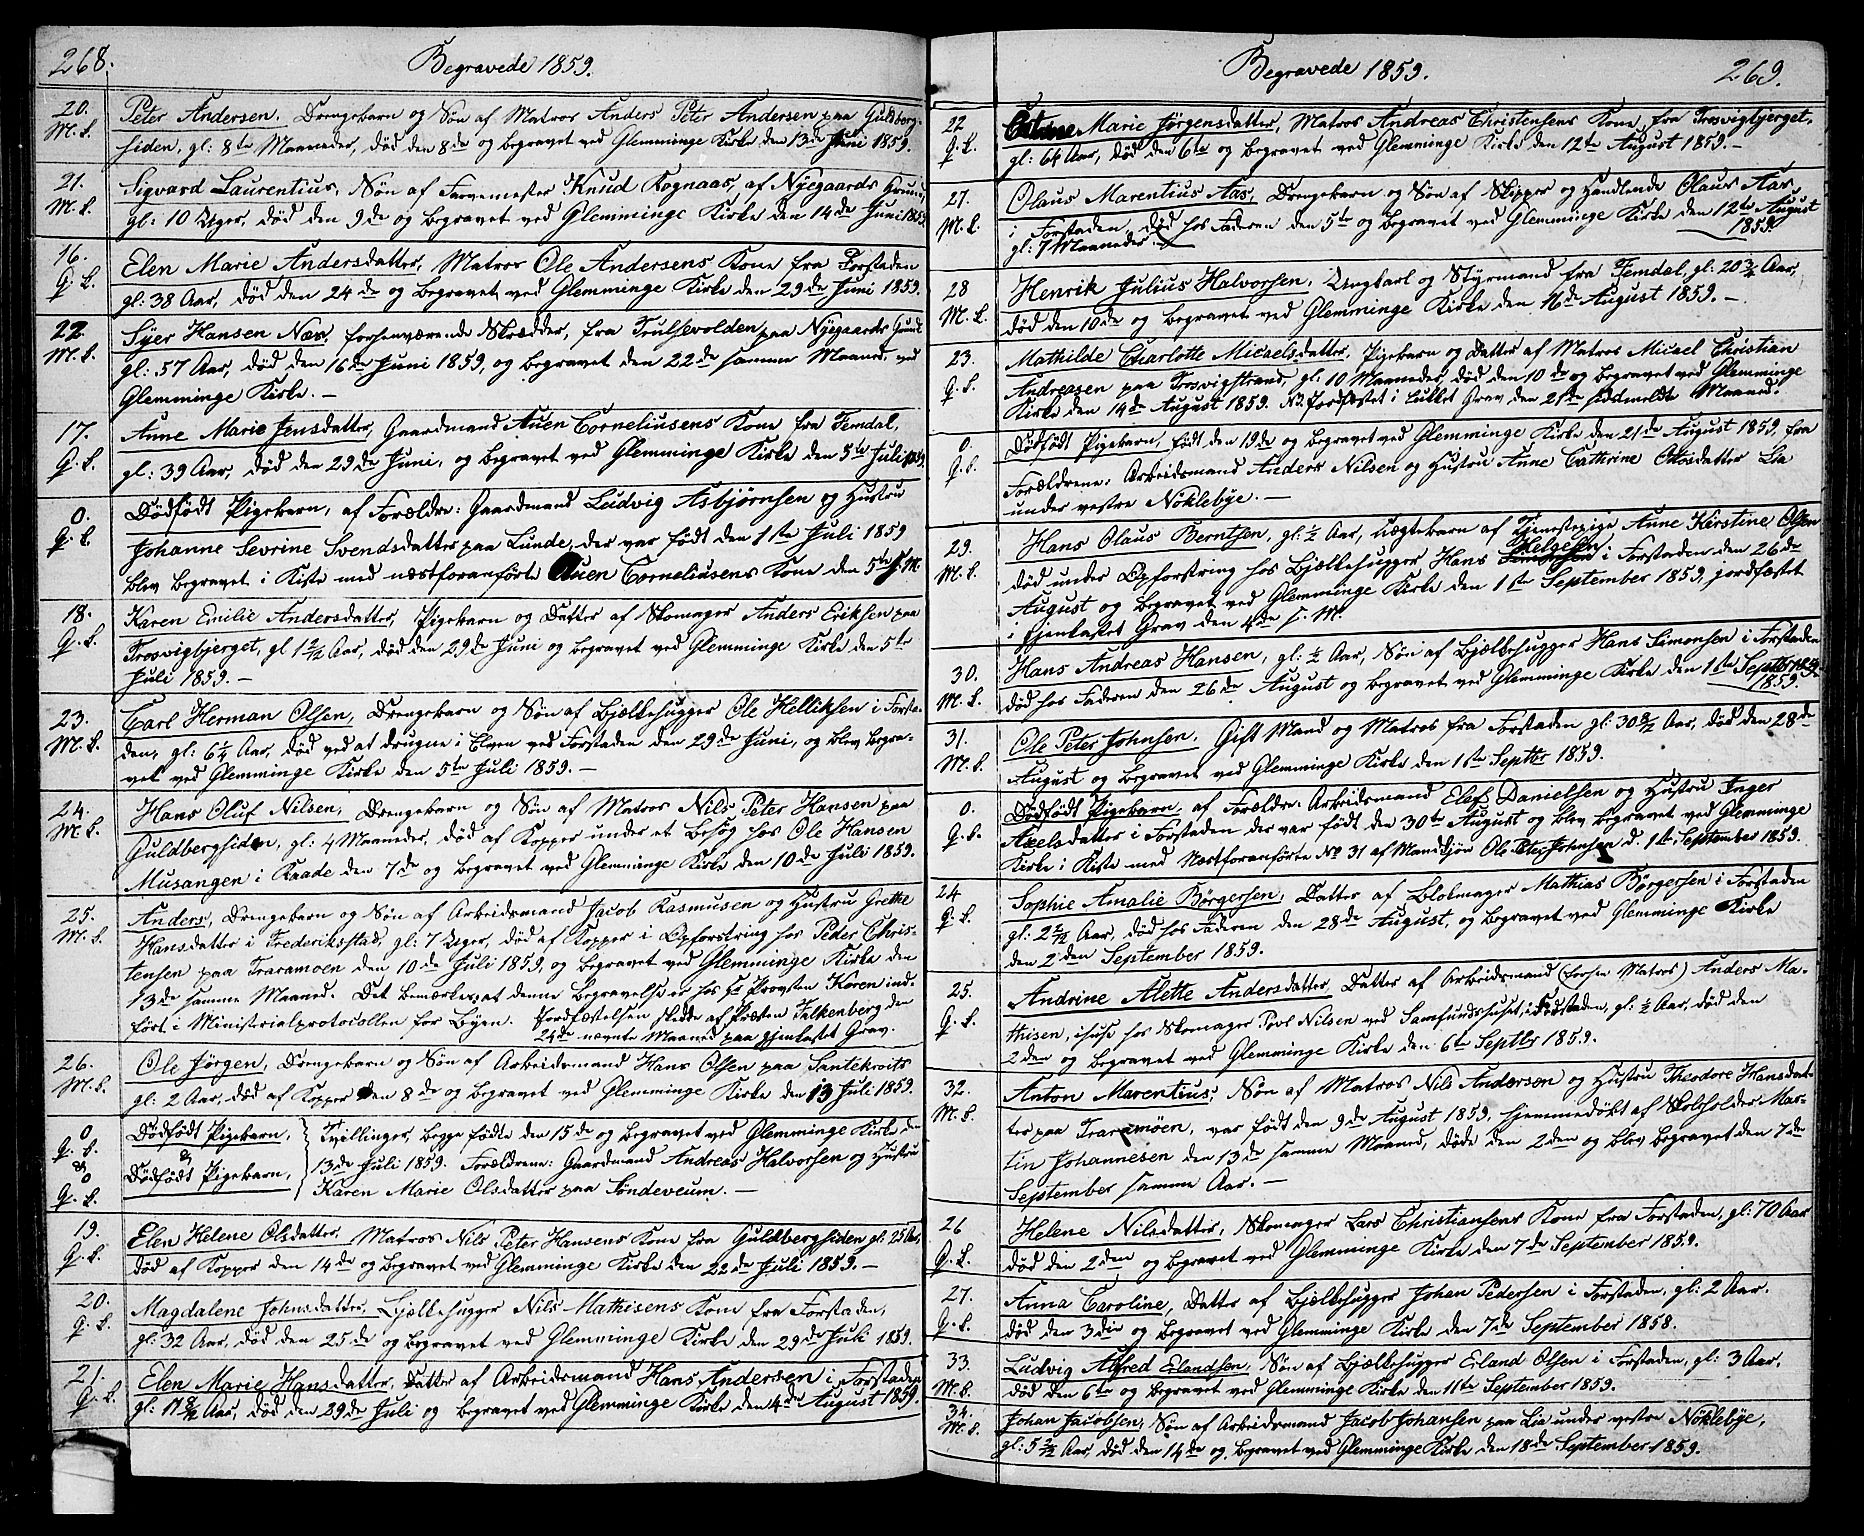 268.
Begravede 1859.
20. Peter Andersen, Drengebarn og Søn af Matros Anders Peter Andersen paa Guldberg-
M. K. siden, gl: 8te Maaneder, død den 8de og begravet ved Glemminge Kirke den 13de Juni 1859.
21. Sigvard Laurentius, Søn af Farvemester Knud Rognaas, af Nyegaards Grund,
M. K. gl: 10 Uger, død den 9de og begravet ved Glemminge Kirke den 14de Juni 1859.
16. Elen Marie Andersdatter, Matros Ole Andersens Kone fra Forstaden
Q. K. gl: 38 Aar, død den 24de og begravet ved Glemminge Kirke den 29de Juni 1859.
22. Syer Hansen Næs, forhenværende Skrædder, fra Trulsevolden paa Nyegaards Grund
M. K. gl: 57 Aar, død den 16de Juni 1859, og begravet den 22de samme Maaned ved
Glemminge Kirke. —
17. Anne Marie Jensdatter, Gaardmand Auen Corneliusens Kone fra Femdal,
Q. K. gl: 39 Aar, død den 29de Juni, og begravet ved Glemminge Kirke den 5te Juli 1859.
0. Dødfødt Pigebarn, af Forældre: Gaardmand Ludvig Asbjørnsen og Hustru
Q. K. Johanne Sevrine Svendsdatter paa Lunde, der var født den 1ste Juli 1859
blev begravet i Kiste med næstforanførte Auen Corneliusens Kone den 5te s. M.
18. Karen Emilie Andersdatter, Pigebarn og Datter af Skomager Anders Eriksen paa
Q. K. Trosvigbjerget, gl 1 2/12 Aar, død den 29de Juni og begravet ved Glemminge Kirke den 5te
Juli 1859. —
23. Carl Herman Olsen, Drengebarn og Søn af Bjælkehugger Ole Helliksen i Forsta-
M. K. den, gl: 6 1/4 Aar, død ved at drugne i Elven ved Forstaden den 29de Juni, og blev begra-
vet ved Glemminge Kirke den 5te Juli 1859. —
24. Hans Oluf Nilsen, Drengebarn og Søn af Matros Nils Peter Hansen paa
M. K. Guldbergsiden, gl: 4 Maaneder, død af Kopper under et Besøg hos Ole Hansen
Musangen i Raade den 7de og begravet ved Glemminge Kirke den 10de Juli 1859.
25. Anders, Drengebarn og Søn af Arbeidsmand Jacob Rasmusen og Hustru Grethe
M. K. Hansdatter i Frederiksstad, gl: 7 Uger, død af Kopper i Opfostring hos Peder Chris-
tensen paa Traramoen den 10de Juli 1859, og begravet ved Glemminge Kirke den
13de samme Maaned. Det bemærkes, at denne Begravelse er hos Hr Provsten Koren ind-
ført i Ministerialprotocollen for Byen. Jordfæstelsen skedde af Præsten Falkenberg den
24de nævnte Maaned paa gjenkastet Grav.
26. Ole Jørgen, Drengebarn og Søn af Arbeidsmand Hans Olsen paa Santekroits
M. K. gl: 2 Aar, død af Kopper den 8de og begravet ved Glemminge Kirke den 13 Juli 1859.
0 Q. K. Dødfødt Pigebarn, Tvillinger, begge fødte den 15de og begravet ved Glemminge Kirke den
& & 13de Juli 1859. Forældrene: Gaardmand Andreas Halvorsen og Hustru
0 Q. K. Dødfødt Pigebarn, Karen Marie Olsdatter paa Søndeveum. —
19. Elen Helene Olsdatter, Matros Nils Peter Hansens Kone fra Guldbergsiden gl: 25 Aar,
Q. K. død af Kopper den 14de og begravet ved Glemminge Kirke den 22de Juli 1859. —
20. Magdalene Johnsdatter, Bjælkehugger Nils Mathisens Kone fra Forstaden,
Q. K. gl: 32 Aar, død den 25de og begravet ved Glemminge Kirke den 29de Juli 1859.
21. Elen Marie Hansdatter, Datter af Arbeidsmand Hans Andersen i Forstaden
Q. K. gl: 11 8/12 Aar, død den 29de Juli og begravet ved Glemminge Kirke den 4de August 1859.
Begravede 1859.
269.
22 Marie Jørgensdatter, Matros Andreas Christensens Kone, fra Trosvigbjerget,
Q. K. gl: 64 Aar, død den 6te og begravet ved Glemminge Kirke den 12te August 1859. —
27. Olaus Marentius Aas, Drengebarn og Søn af Skipper og Handlende Olaus Aas
M. K. i Forstaden, død hos Faderen den 5te og begravet ved Glemminge Kirke den 12te August
gl: 7 Maaneder. 1859.
28 Henrik Julius Halvorsen, Ungkarl og Styrmand fra Femdal, gl: 20 3/4 Aar,
M. K. død den 10de og begravet ved Glemminge Kirke den 16de August 1859. —
23. Mathilde Charlotte Micaelsdatter, Pigebarn og Datter af Matros Micael Christian
Q. K. Andreasen paa Trosvigstrand, gl: 10 Maaneder, død den 10de og begravet ved Glemminge
Kirke den 14de August 1859. NB. Jordfæstet i lukket Grav den 21de sidstmeldte Maaned.
0. Dødfødt Pigebarn, født den 19de og begravet ved Glemminge Kirke den 21de August 1859, fra
Q. K. Forældrene: Arbeidsmand Anders Nilsen og Hustru Anne Cathrine Ottosdatter Lia
under vestre Nøklebye. —
29. Hans Olaus Berntsen, gl: 1/2 Aar, Uægtebarn af Tjenestepige Anne Kirstine Olsen
Helgesen
M. K. død under Opfostring hos Bjælkehugger Hans Simonsen i Forstaden den 26de
August og begravet ved Glemminge Kirke den 1ste September 1859, jordfæstet
i gjenkastet Grav den 4de s. M.
30. Hans Andreas Hansen, gl: 1/2 Aar, Søn af Bjælkehugger Hans Simonsen i Forstaden
M. K. død hos Faderen den 26de August og begravet ved Glemminge Kirke den 1ste Septbr 1859.
1859.
31. Ole Peter Johnsen, Gift Mand og Matros fra Forstaden gl: 30 8/12 Aar, død den 28de
M. K. August og begravet ved Glemminge Kirke den 1ste Septbr 1859.
0. Dødfødt Pigebarn, af Forældre: Arbeidsmand Elef Danielsen og Hustru Inger
Q. K. Axelsdatter i Forstaden der var født den 30te August og blev begravet ved Glemminge
Kirke i Kiste med Næstforanførte No 31 af Mandkjøn Ole Peter Johnsen d. 1ste September 1859.
24 Sophie Amalie Børgersen, Datter af Blokmager Mathias Børgersen i Forstaden
Q. K. gl: 2 2/12 Aar, død hos Faderen den 28de August, og begravet ved Glemminge Kirke
den 2den September 1859.
25. Andrine Alette Andersdatter, Datter af Arbeidsmand (forhen Matros) Anders Ma-
Q. K. thisen, i huse hos Skomager Povl Nilsen ved Samfundshuset i Forstaden, gl: 1/2 Aar, død den
2den og begravet ved Glemminge Kirke den 6te Septbr 1859.
32. Anton Marentius, Søn af Matros Nils Andersen og Hustru Theodore Hansdat-
M. K. ter paa Traramoen, var født den 9de August 1859, hjemmedøbt af Skoleholder Mar-
tin Johannesen den 13de samme Maaned, døde den 2den og blev begravet den 7de
September samme Aar. —
26 Helene Nilsdatter, Skomager Lars Christiansens Kone fra Forstaden, gl: 70 Aar
Q. K. død den 2den og begravet ved Glemminge Kirke den 7de September 1859.
27. Anna Caroline, Datter af Bjælkehugger Johan Pedersen i Forstaden, gl: 2 Aar.
Q. K. død den 3die og begravet ved Glemminge Kirke den 7de September 1858.
33. Ludvig Alfred Erlandsen, Søn af Bjælkehugger Erland Olsen i Forstaden, gl: 3 Aar.
M. K. død den 6te og begravet ved Glemminge Kirke den 11te September 1859.
34. Johan Jacobsen, Søn af Arbeidsmand Jacob Johansen paa Lia under vestre Nøklebye,
M. K. gl: 5 3/12 Aar, død den 14de og begravet ved Glemminge Kirke den 18de September 1859.